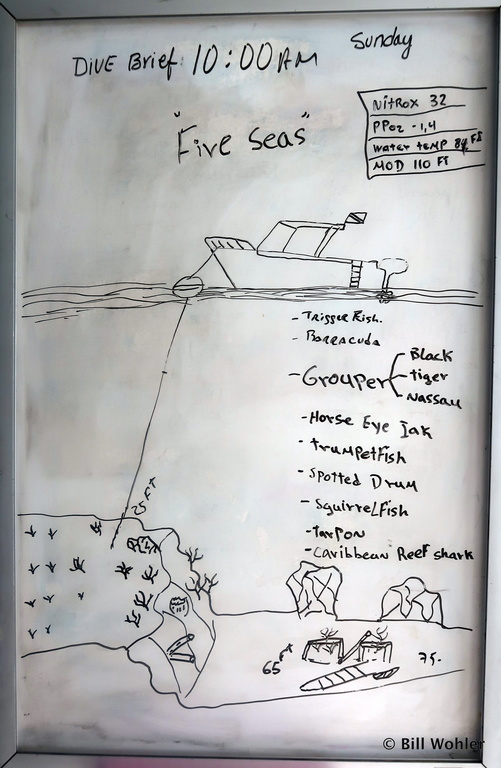 Dive Brief 10:00AM
Sunday
Nitrox 32
PPO2 - 1,4
water temp 84 Ft
MOD 110 Ft
"Five Seas"
- Trigger Fish.
- Barracuda
- Grouper
Black
tiger
Nassau
- Horse Eye Jak
- trumpetfish
- Spotted Drum
- Squirrelfish
- tarpon
- Caribbean Reef shark
25 Ft
65 Ft
75.
© Bill Wohler